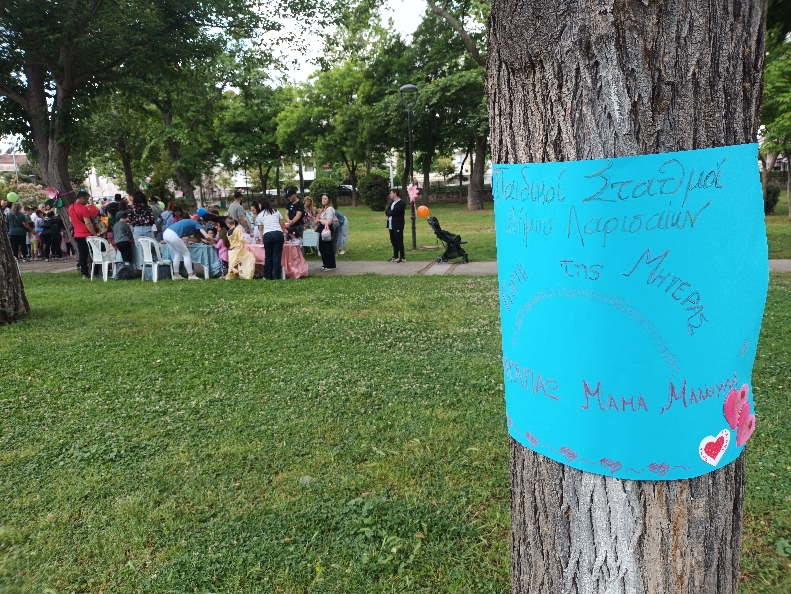 Παιδικοί Σταθμοί
Δήμου Λαρισαίων
της Μητέρας
ΜΑΜΑ, ΜΑΝΟΥΛΑ